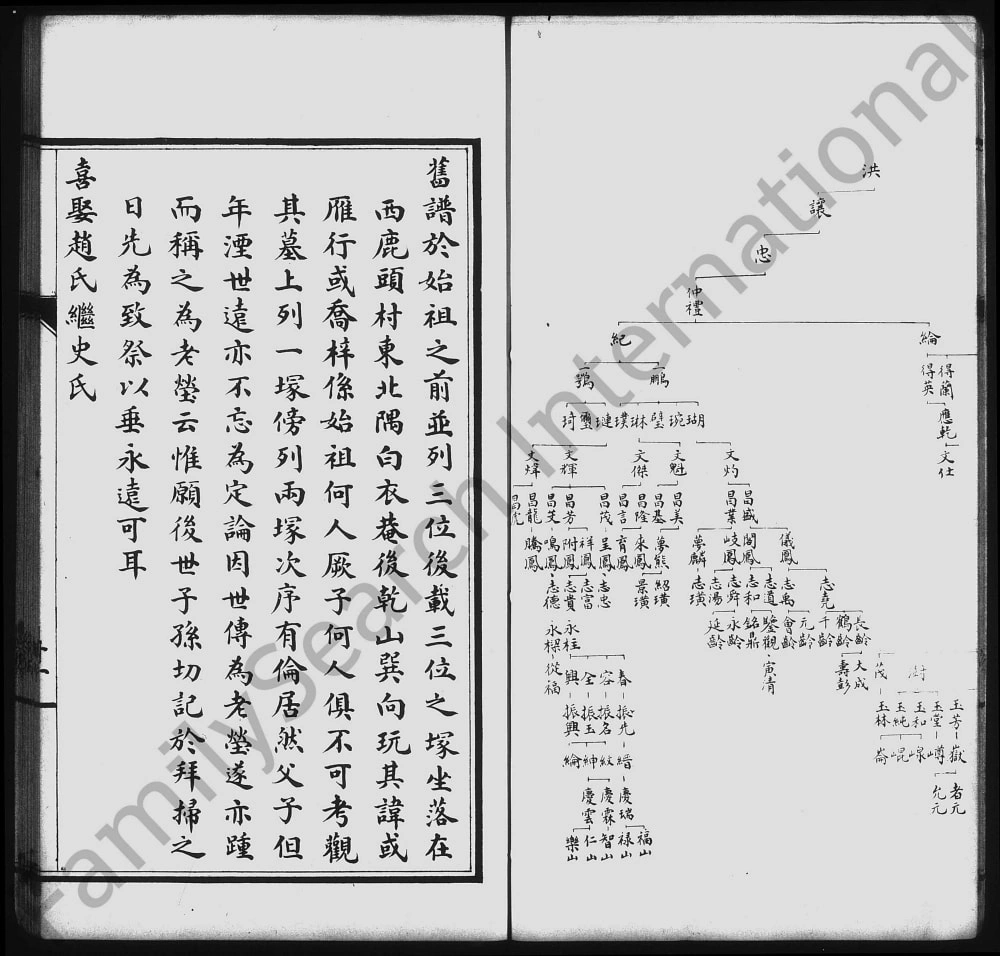 洪
讓
忠
仲禮
綸 紀
得蘭 得英 鵬 鶚
應乾
文仕
瑚 琬 璧 琳 璞 璉 璽 琦
文灼 文魁 文傑 文輝 文煒
昌盛 昌業 昌美 昌基 昌隆 昌言 昌茂 昌芳 昌笑 昌龍 昌虎
儀鳳 閣鳳 岐鳳 夢麟 夢熊 來鳳 育鳳 呈鳳 祥鳳 附鳳 鳴鳳 騰鳳
志堯 志禹 志道 志和 志舜 志湯 志璜 紹璜 景璜 志忠 志富 志貴 志德
長齡 鶴齡 千齡 元齡 會齡 鑒觀 銘鼎 永齡 延齡 永桂 永樑
大成 壽彭 寅清 從福
春 容 全 興
澍 茂
玉芳 玉堂 玉和 玉純 玉林 振先 振名 振玉 振興
嶽 嶟 崐 崙 縉 紋 紳 綸
者元 允元 慶瑞 慶霖 慶雲
福山 祿山 智山 仁山 樂山
舊譜於始祖之前並列三位後載三位之塚坐落在
西鹿頭村東北隅白衣菴後乾山巽向玩其諱或
雁行或喬梓係始祖何人厥子何人俱不可考觀
其墓上列一塚傍列兩塚次序有倫居然父子但
年湮世遠亦不忘為定論因世傳為老塋遂亦踵
而稱之為老塋云惟願後世子孫切記於拜掃之
日先為致祭以垂永遠可耳
喜娶趙氏繼史氏
FamilySearch International